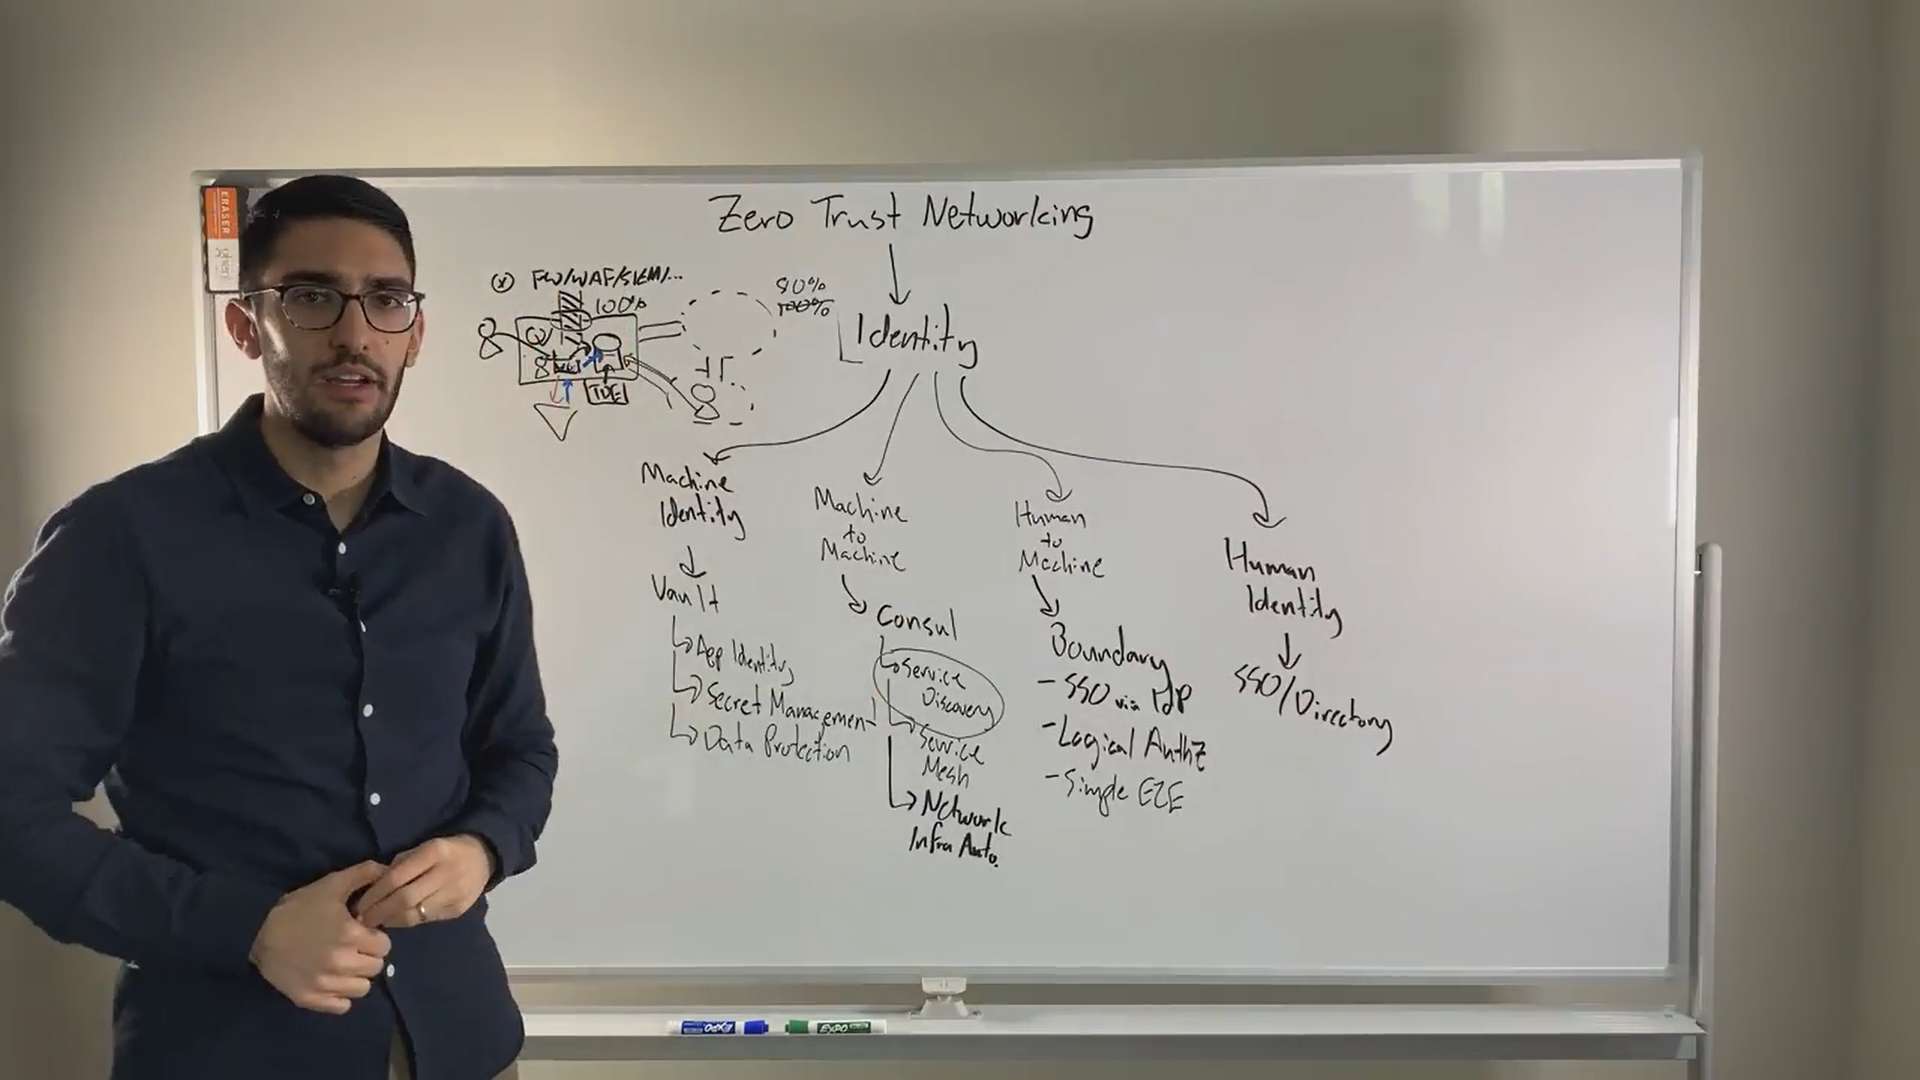 ERASER
Zero Trust Networking
FW/WAF/SIEM/...
100%
80%
100%
Identity
TDE
Machine
Identity
Vault
App Identity
Secret Management
Data Protection
Machine
to
Machine
Consul
Service
Discovery
Service
Mesh
Network
Infra Auto.
Human
to
Machine
Boundary
- SSO via IdP
- Logical AuthZ
- Simple E2E
Human
Identity
SSO/Directory
EXPO
EXPO